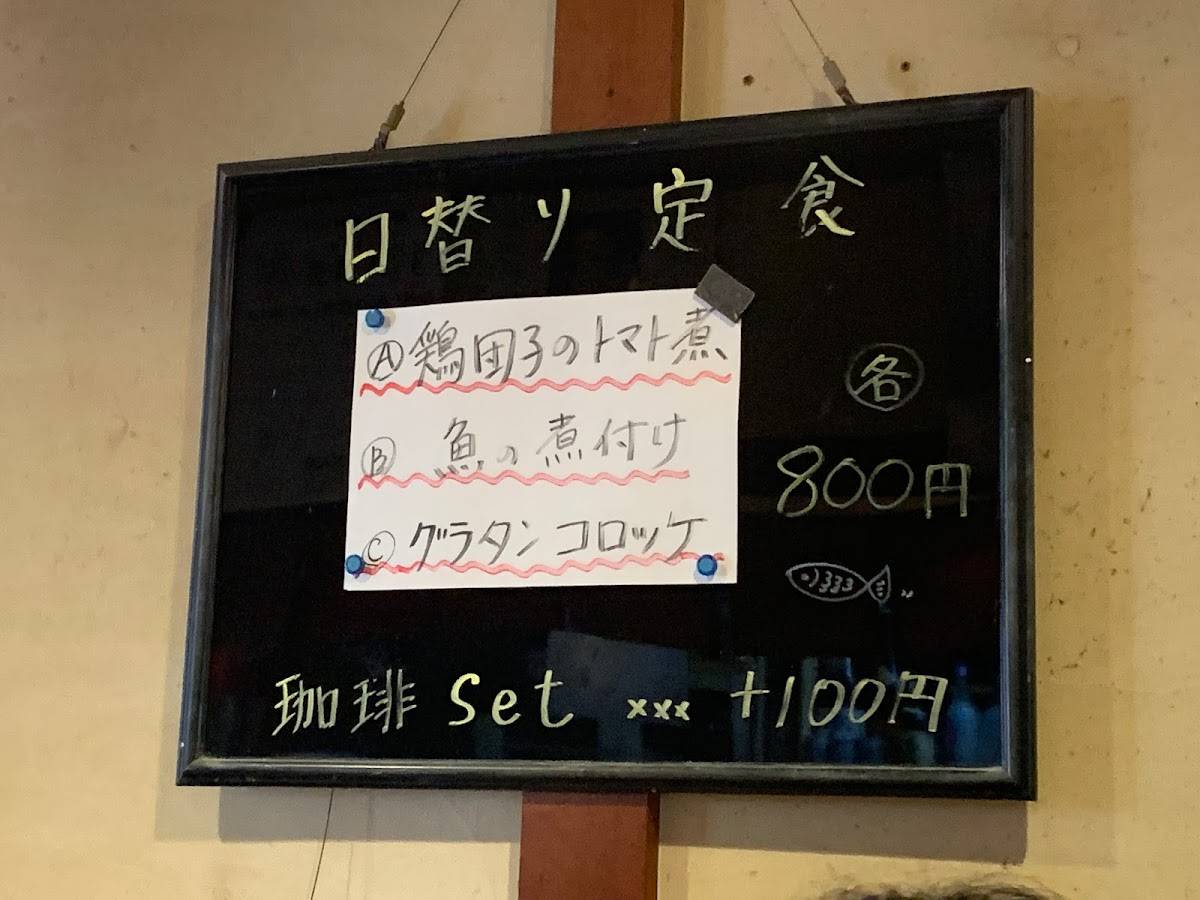 日替り定食
Ⓐ鶏団子のトマト煮
Ⓑ 魚の煮付け
Ⓒグラタンコロッケ
各
800円
珈琲 Set xxx +100円